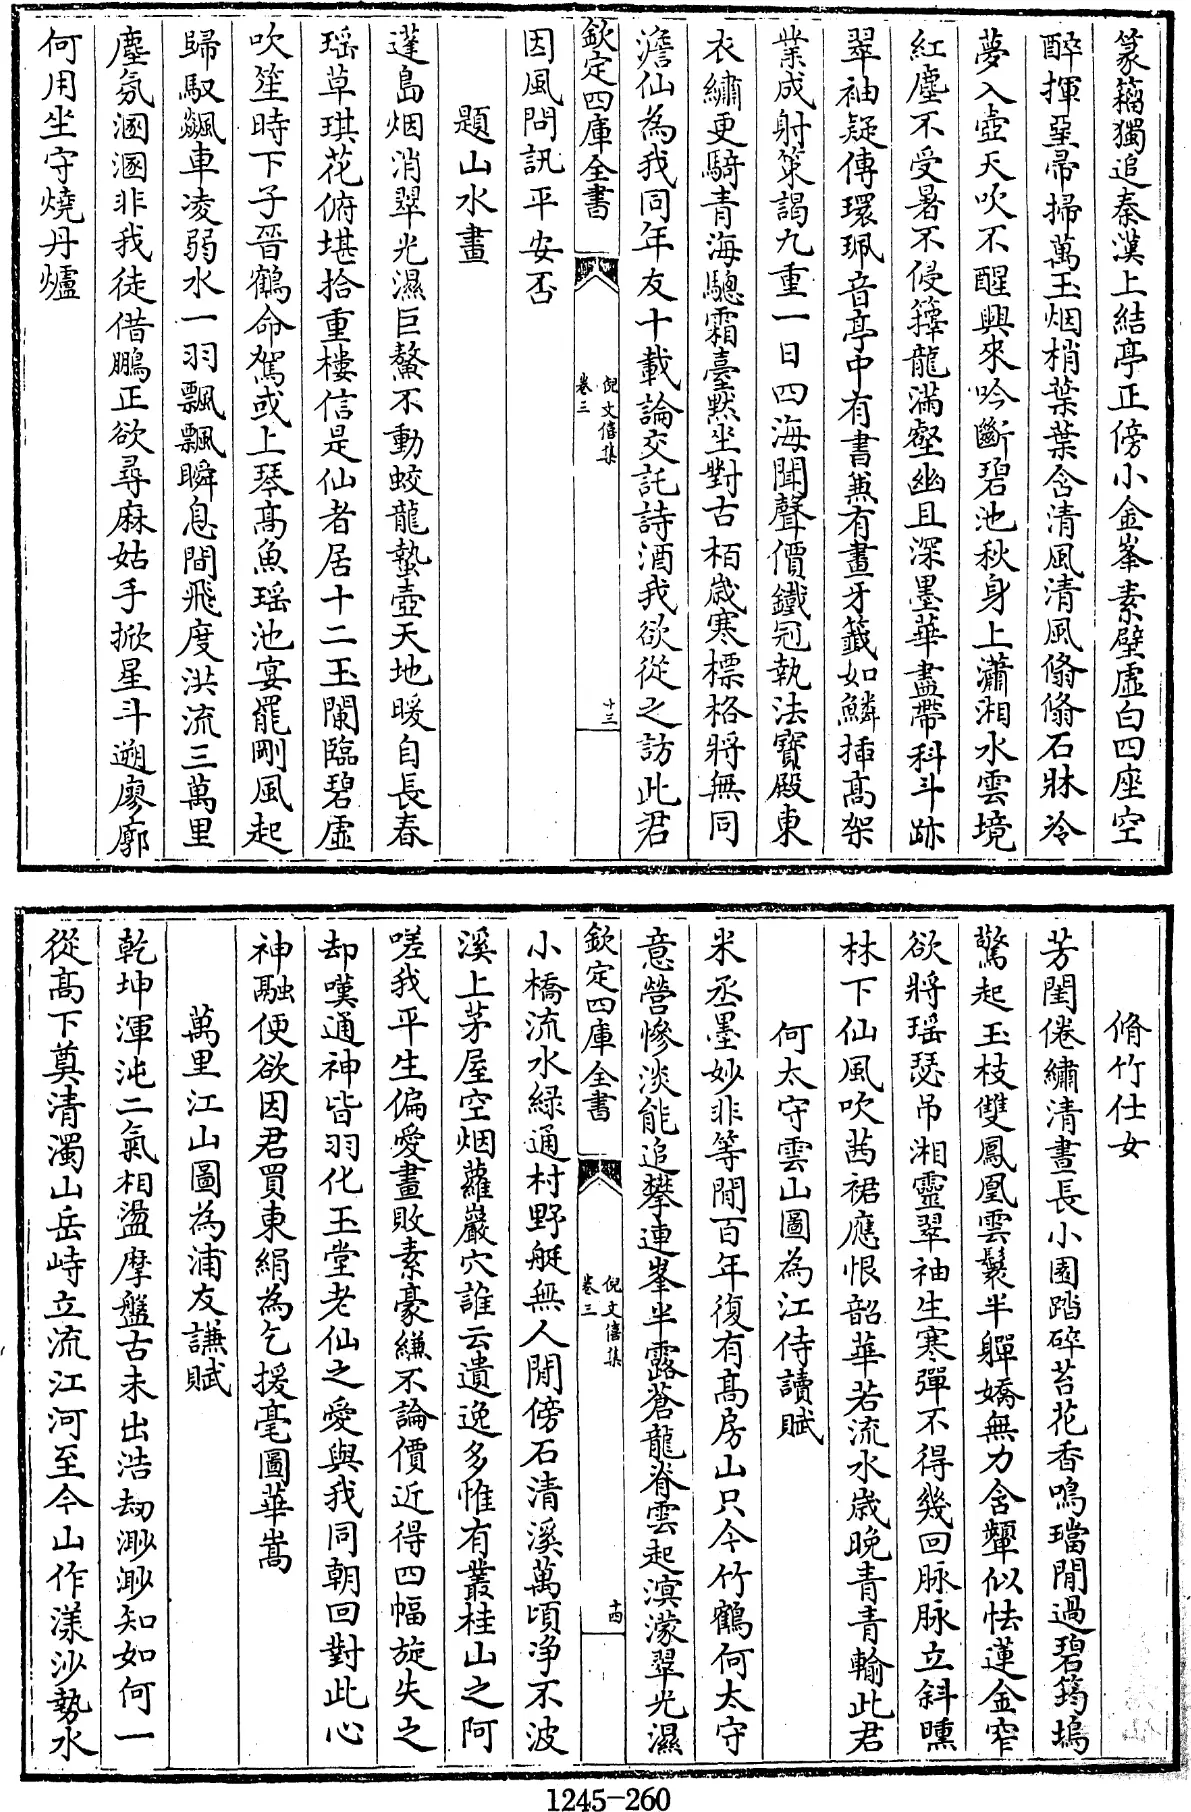 篆籀獨追秦漢上結亭正傍小金峯素壁虛白四座空
醉揮堊帚掃萬玉烟梢葉葉含清風清風翛翛石牀冷
夢入壺天吹不醒興來吟斷碧池秋身上瀟湘水雲境
紅塵不受暑不侵籜龍滿壑幽且深墨華盡帶科斗跡
翠袖疑傳環珮音亭中有書兼有畫牙籤如鱗揷高架
業成射策謁九重一日四海聞聲價鐵冠執法寶殿東
衣繡更騎青海驄霜臺黙坐對古栢歲寒標格將無同
澹仙為我同年友十載論交託詩酒我欲從之訪此君
欽定四庫全書
倪文僖集
卷三
十三
因風問訊平安否
題山水畫
蓬島烟消翠光濕巨鰲不動蛟龍蟄壺天地暖自長春
瑶草琪花俯堪拾重樓信是仙者居十二玉闌臨碧虛
吹笙時下子晉鶴命駕或上琴高魚瑶池宴罷剛風起
歸馭飈車凌弱水一羽飄飄瞬息間飛度洪流三萬里
塵氛溷溷非我徒借鵬正欲尋麻姑手掀星斗遡廖廓
何用坐守燒丹爐
脩竹仕女
芳閨倦繡清晝長小園踏碎苔花香鳴璫閒過碧筠塢
驚起玉枝雙鳳凰雲鬟半軃嬌無力含顰似怯蓮金窄
欲將瑶瑟弔湘靈翠袖生寒彈不得幾回脉脉立斜曛
林下仙風吹茜裙應恨韶華若流水歲晩青青輸此君
何太守雲山圖為江侍讀賦
米丞墨妙非等閒百年復有高房山只今竹鶴何太守
意營慘淡能追攀連峯半露蒼龍脊雲起溟濛翠光濕
欽定四庫全書
倪文僖集
卷三
十四
小橋流水綠通村野艇無人閒傍石清溪萬頃净不波
溪上茅屋空烟蘿巖穴誰云遺逸多惟有叢桂山之阿
嗟我平生偏愛畫敗素豪縑不論價近得四幅旋失之
却嘆通神皆羽化玉堂老仙之愛與我同朝回對此心
神融便欲因君買東絹為乞援毫圖華嵩
萬里江山圖為浦友謙賦
乾坤渾沌二氣相盪摩盤古未出浩劫渺渺知如何一
從高下奠清濁山岳峙立流江河至今山作漾沙勢水
1245-260